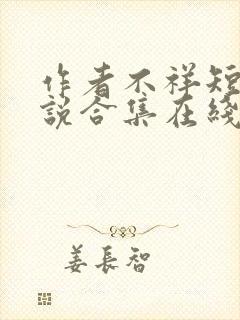 作者不祥短
說合集在綫
姜長智